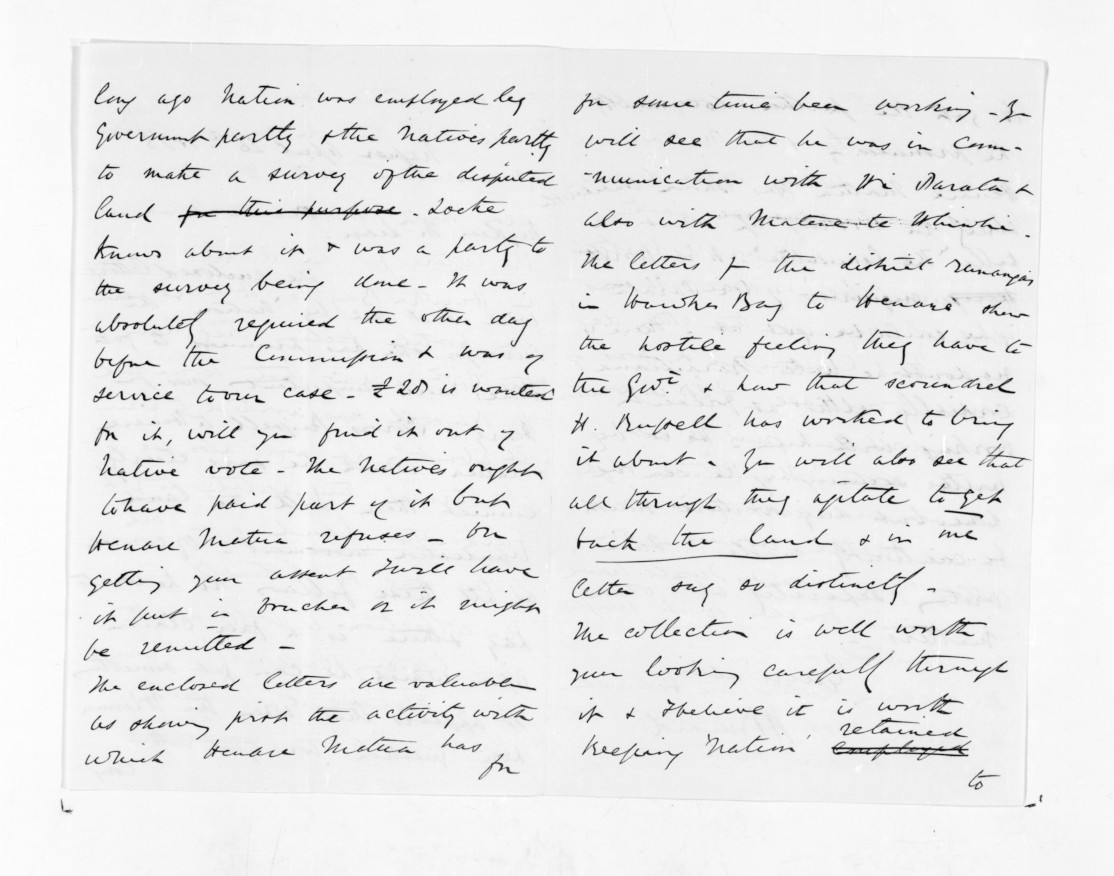 long ago Nation was employed by
Government partly & the Natives partly
to make a survey of the disputed
land for this purpose - Locke
knows about it & was a party to
the survey being done - It was
absolutely required the other day
before the Commission & was of
service to our case - £20 is wanted
for it, will you find it out of
Native vote - The Natives ought
to have paid part of it but
Henare Matua refuses - On
getting your assent I will have
it put in voucher or it might
be remitted -
The enclosed letters are valuable
as showing first the activity with
which Henare Matua has
for
for some time been working - Yr
will see that he was in Com-
-munication with Wi Parata &
also with Matene te Whiwhi -
The letters fr the district runangas
in Hawkes Bay to Henare shew
the hostile feeling they have to
the Govt. & how that scoundrel
H. Russell has worked to bring
it about - You will also see that
all through they agitate to get
back the land & in one
letter say so distinctly -
The collection is well worth
your looking carefully through
it & I believe it is worth
keeping 'Nation' employed retained
to